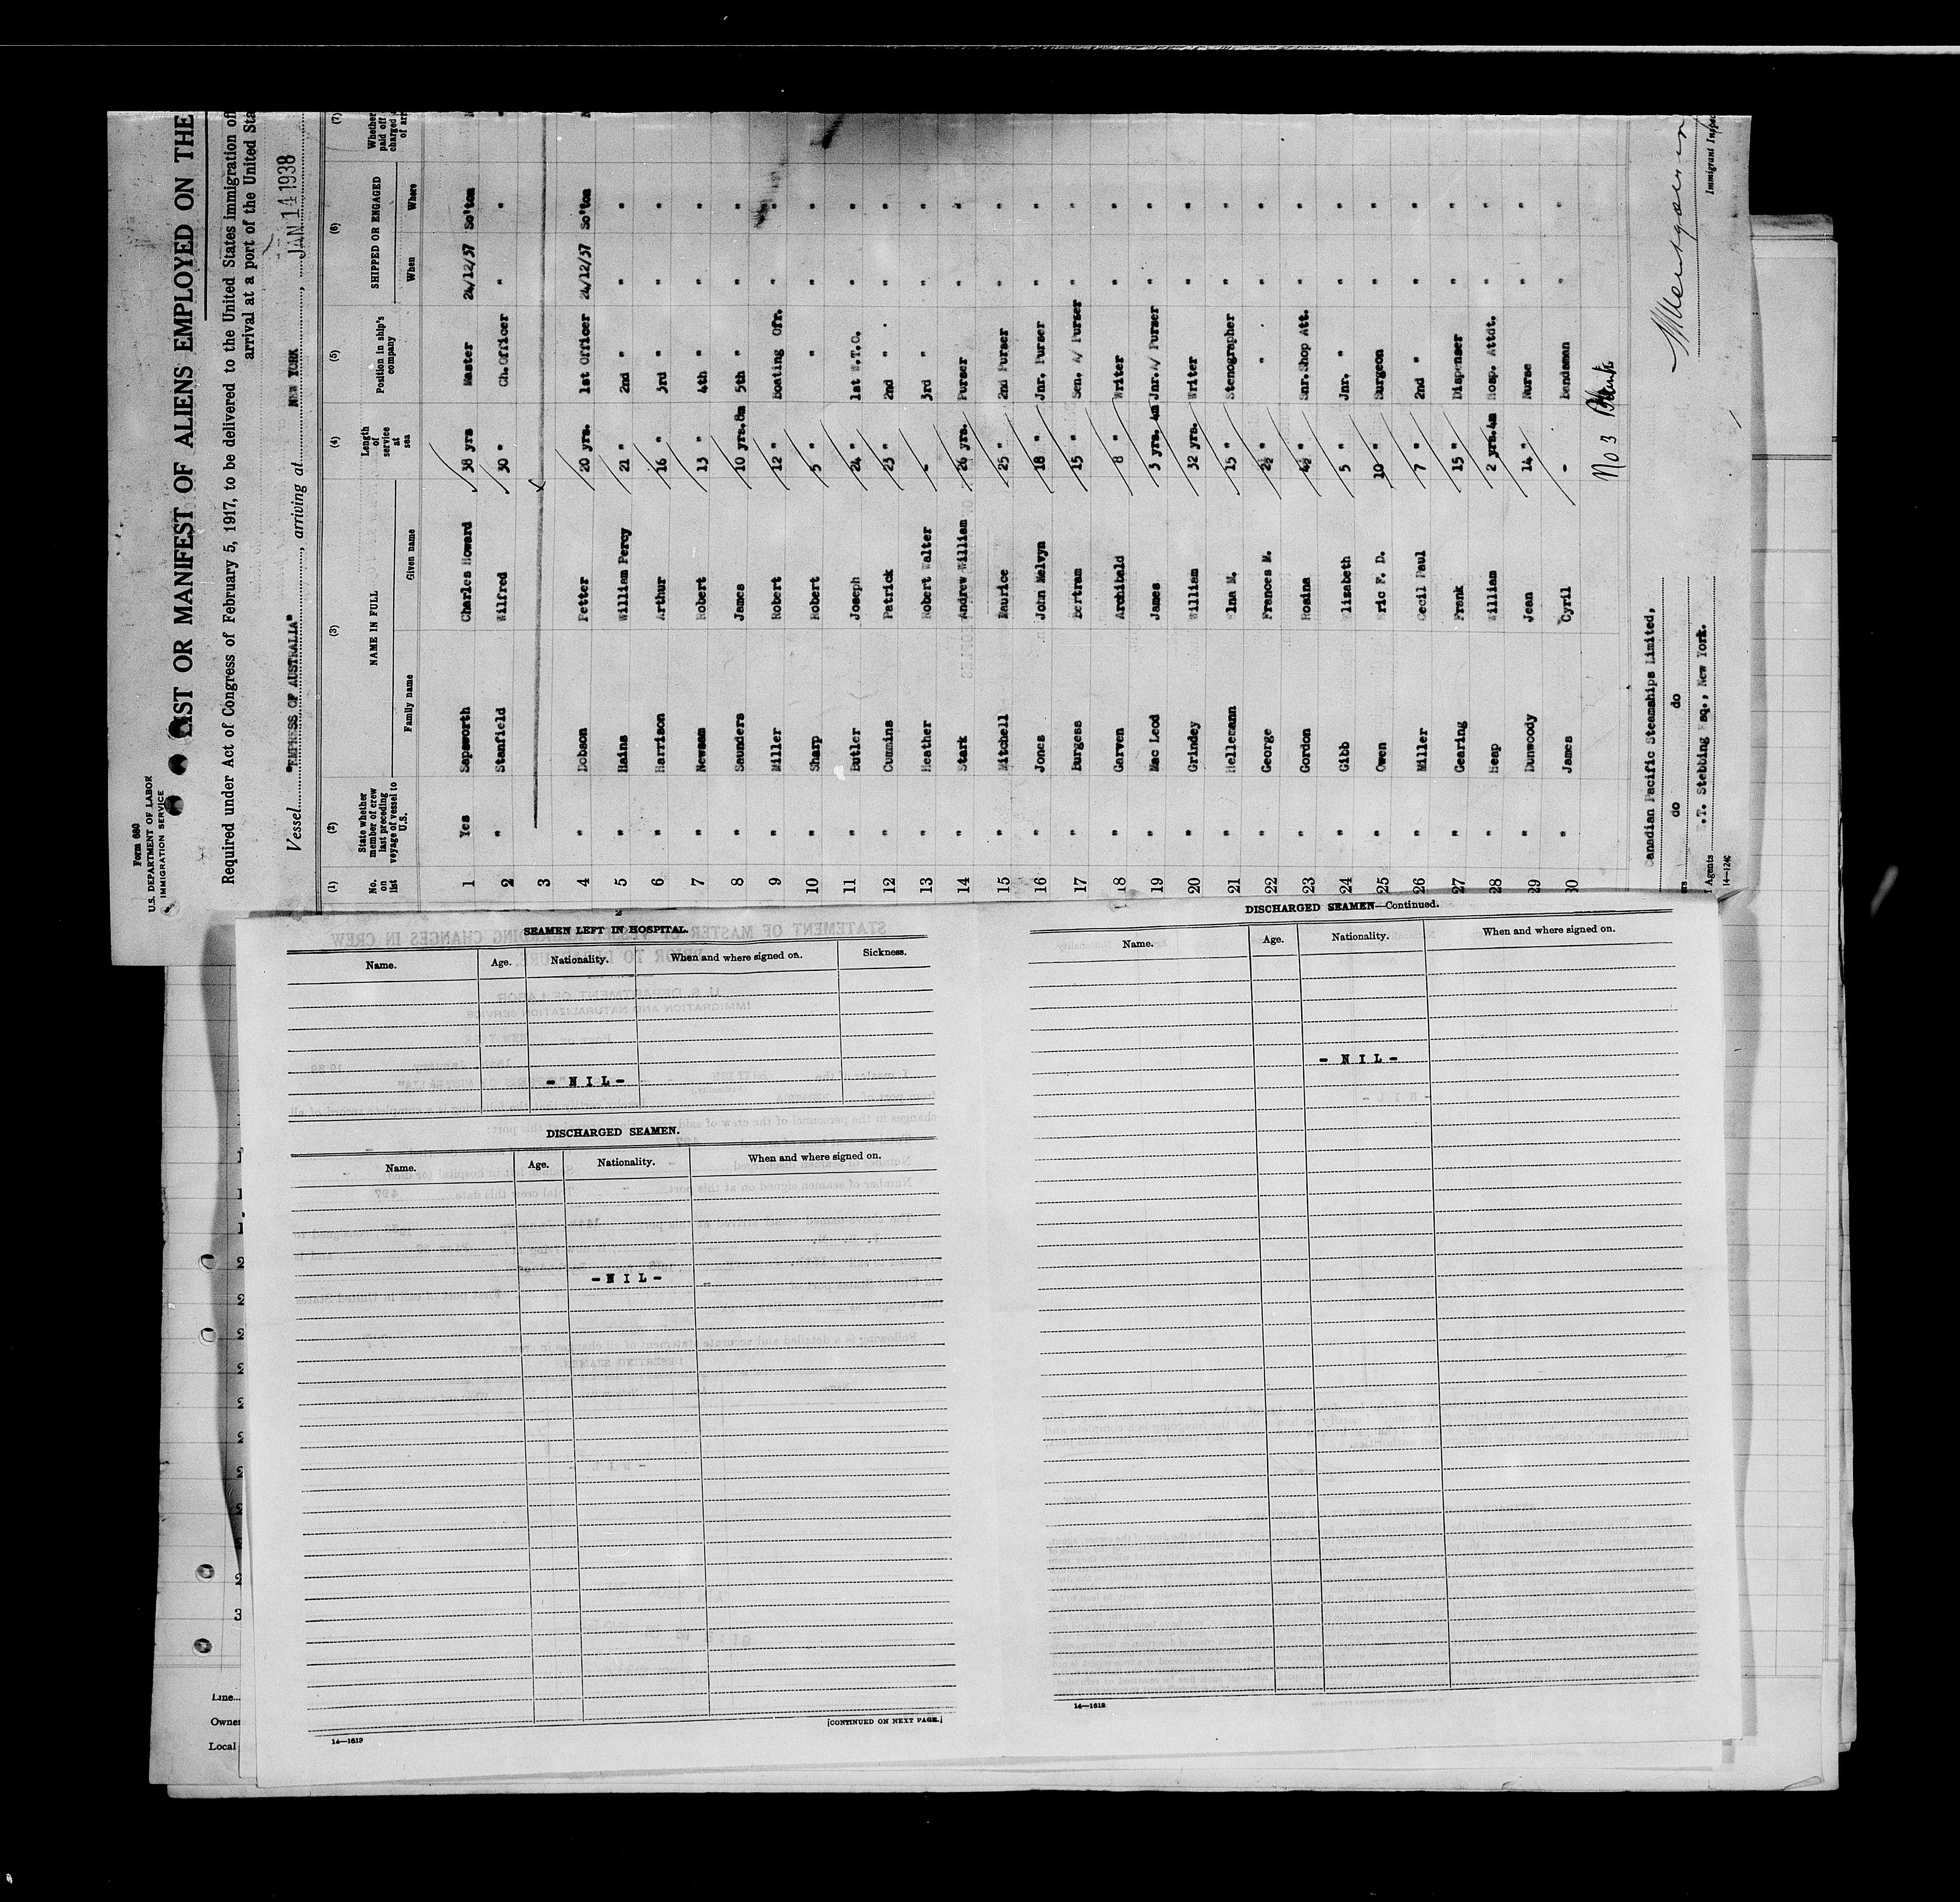 Form 680
U.S. DEPARTMENT OF LABOR
IMMIGRATION SERVICE
LIST OR MANIFEST OF ALIENS EMPLOYED ON THE
Required under Act of Congress of February 5, 1917, to be delivered to the United States immigration of
arrival at a port of the United Sta
Vessel "EMPRESS OF AUSTRALIA", arriving at NEW YORK, JAN 14 1938
(1) (2) (3) (4) (5) (6) (7)
No. on list
State whether member of crew last preceding voyage of vessel to U.S.
NAME IN FULL
Family name Given name
Length of service at sea
Position in ship's company
SHIPPED OR ENGAGED
When Where
Whether paid off charged of arr
1 Yes Sapsworth Charles Howard 38 yrs Master 24/12/37 So'ton
2 " Stanfield Wilfred 30 " Ch.Officer " "
3
4 " Dobson Petter 20 yrs. 1st Officer 24/12/37 So'ton
5 " Hains William Percy 21 " 2nd " " "
6 " Harrison Arthur 16 " 3rd " " "
7 " Newsam Robert 13 " 4th " " "
8 " Saunders James 10 yrs.8m 5th " " "
9 " Miller Robert 12 " Boating Ofr. " "
10 " Sharp Robert 5 " " " "
11 " Butler Joseph 24 " 1st W.T.O. " "
12 " Cummins Patrick 23 " 2nd " " "
13 " Heather Robert Walter - 3rd " " "
14 " Stark Andrew William 26 yrs. Purser " "
15 " Mitchell Maurice 25 " 2nd Purser " "
16 " Jones John Melvyn 18 " Jnr. Purser " "
17 " Burgess Bertram 15 " Sen. A/ Purser " "
18 " Garven Archibald 8 " Writer " "
19 " Mac Leod James 3 yrs. 4m Jnr.A/ Purser " "
20 " Grindey William 32 yrs. Writer " "
21 " Hellemann Elna M. 15 " Stenographer " "
22 " George Frances M. 2½ " " " "
23 " Gordon Rosina 4½ " Snr.Shop Att. " "
24 " Gibb Elizabeth 5 " Jnr. " " "
25 " Owen Eric F. D. 10 " Surgeon " "
26 " Miller Cecil Paul 7 " 2nd " " "
27 " Gearing Frank 15 " Dispenser " "
28 " Heap William 2 yrs.4m Hosp. Attdt. " "
29 " Dunwoody Jean 14 " Nurse " "
30 " James Cyril - Bandsman " "
No 3 Blank
Canadian Pacific Steamships Limited,
do do
Agents E.T. Stebbing Esq., New York.
14—1240
Immigrant Inspec
SEAMEN LEFT IN HOSPITAL.
Name. Age. Nationality. When and where signed on. Sickness.
- N I L -
DISCHARGED SEAMEN.
Name. Age. Nationality. When and where signed on.
- N I L -
[CONTINUED ON NEXT PAGE.]
14—1619
DISCHARGED SEAMEN—Continued.
Name. Age. Nationality. When and where signed on.
- N I L -
14—1619
Line
Owner
Local